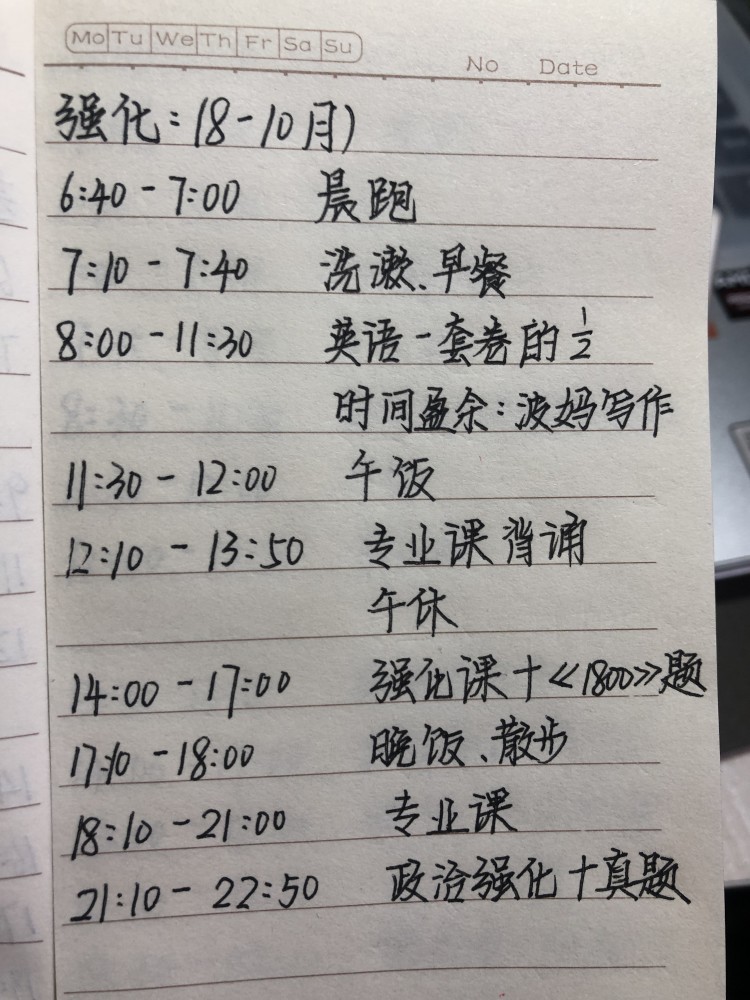 Mo Tu We Th Fr Sa Su
No Date
强化：(8-10月)
6:40 - 7:00 晨跑
7:10 - 7:40 洗漱、早餐
8:00 - 11:30 英语一套卷的1/2
时间盈余：波妈写作
11:30 - 12:00 午饭
12:10 - 13:50 专业课背诵
午休
14:00 - 17:00 强化课+《1800》题
17:10 - 18:00 晚饭、散步
18:10 - 21:00 专业课
21:10 - 22:50 政治强化+真题